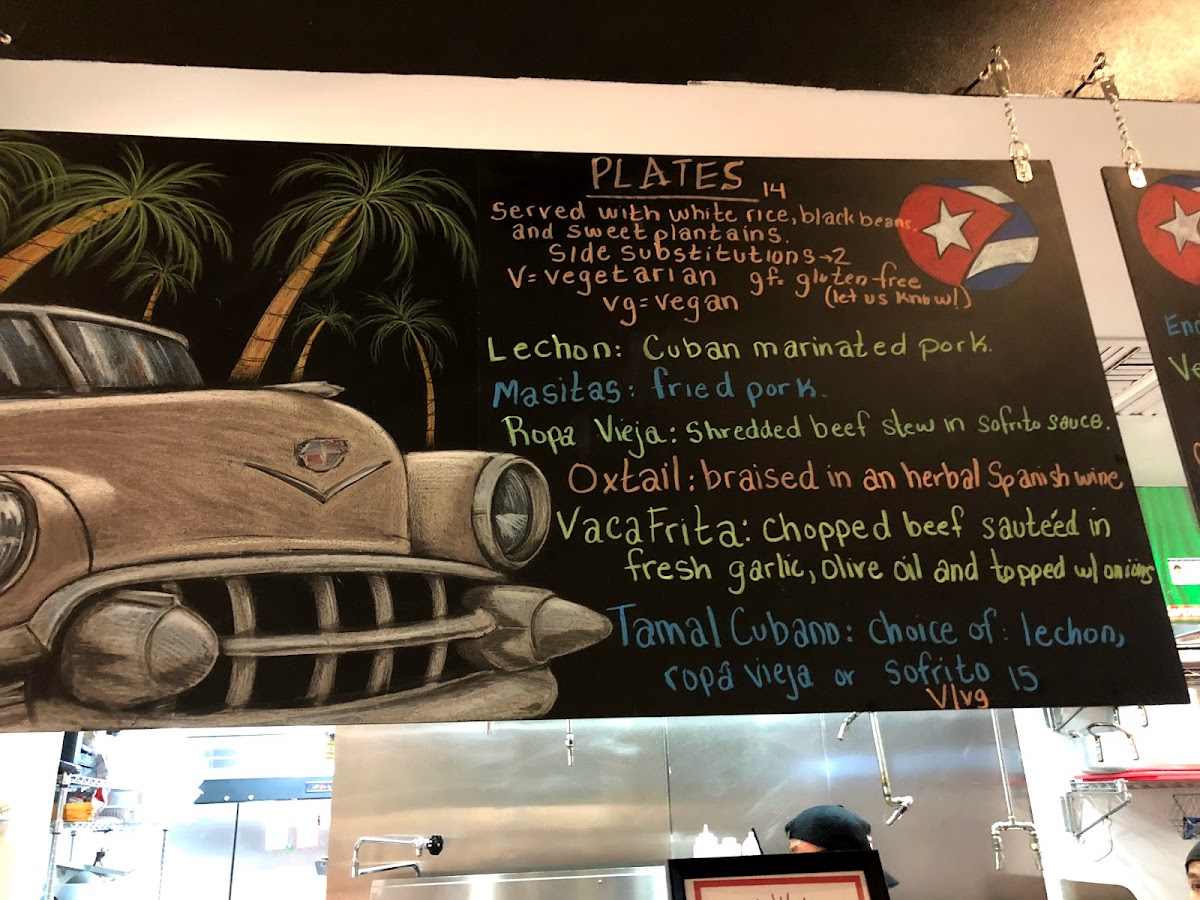 PLATES 14
Served with white rice, black beans,
and sweet plantains.
Side substitutions → 2
V = vegetarian gf = gluten-free
vg = vegan (let us know!)
Lechon: Cuban marinated pork.
Masitas: fried pork.
Ropa Vieja: Shredded beef stew in sofrito sauce.
Oxtail: braised in an herbal Spanish wine
Vaca Frita: Chopped beef sauteéd in
fresh garlic, olive oil and topped w/ onions
Tamal Cubano: Choice of: lechon,
ropa vieja or sofrito 15
V/vg